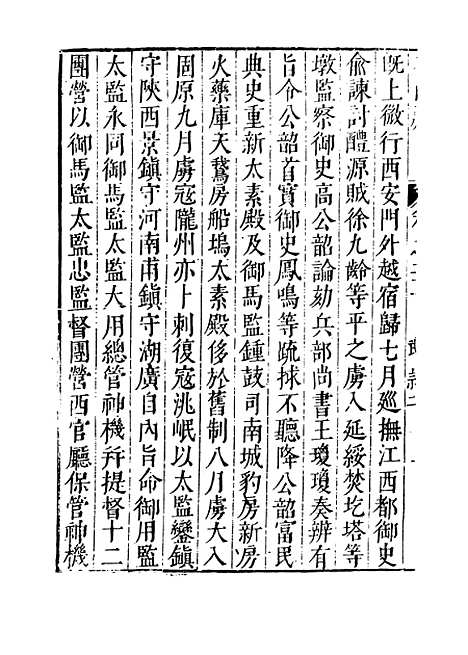 既上微行西安門外越宿歸七月巡撫江西都御史
俞諫討醴源賊徐九齡等平之虜入延綏焚圪塔等
墩監察御史高公韶論劾兵部尚書王瓊瓊奏辨有
旨令公韶首實御史鳳鳴等疏捄不聽降公韶富民
典史重新太素殿及御馬監鍾鼓司南城豹房新房
火藥庫天鵞房船塢太素殿侈於舊制八月虜大入
固原九月虜寇隴州亦卜剌復寇洮岷以太監鑾鎮
守陝西景鎮守河南甫鎮守湖廣自內旨命御用監
太監永同御馬監太監大用總管神機并提督十二
團營以御馬監太監忠監督團營西官廳保管神機